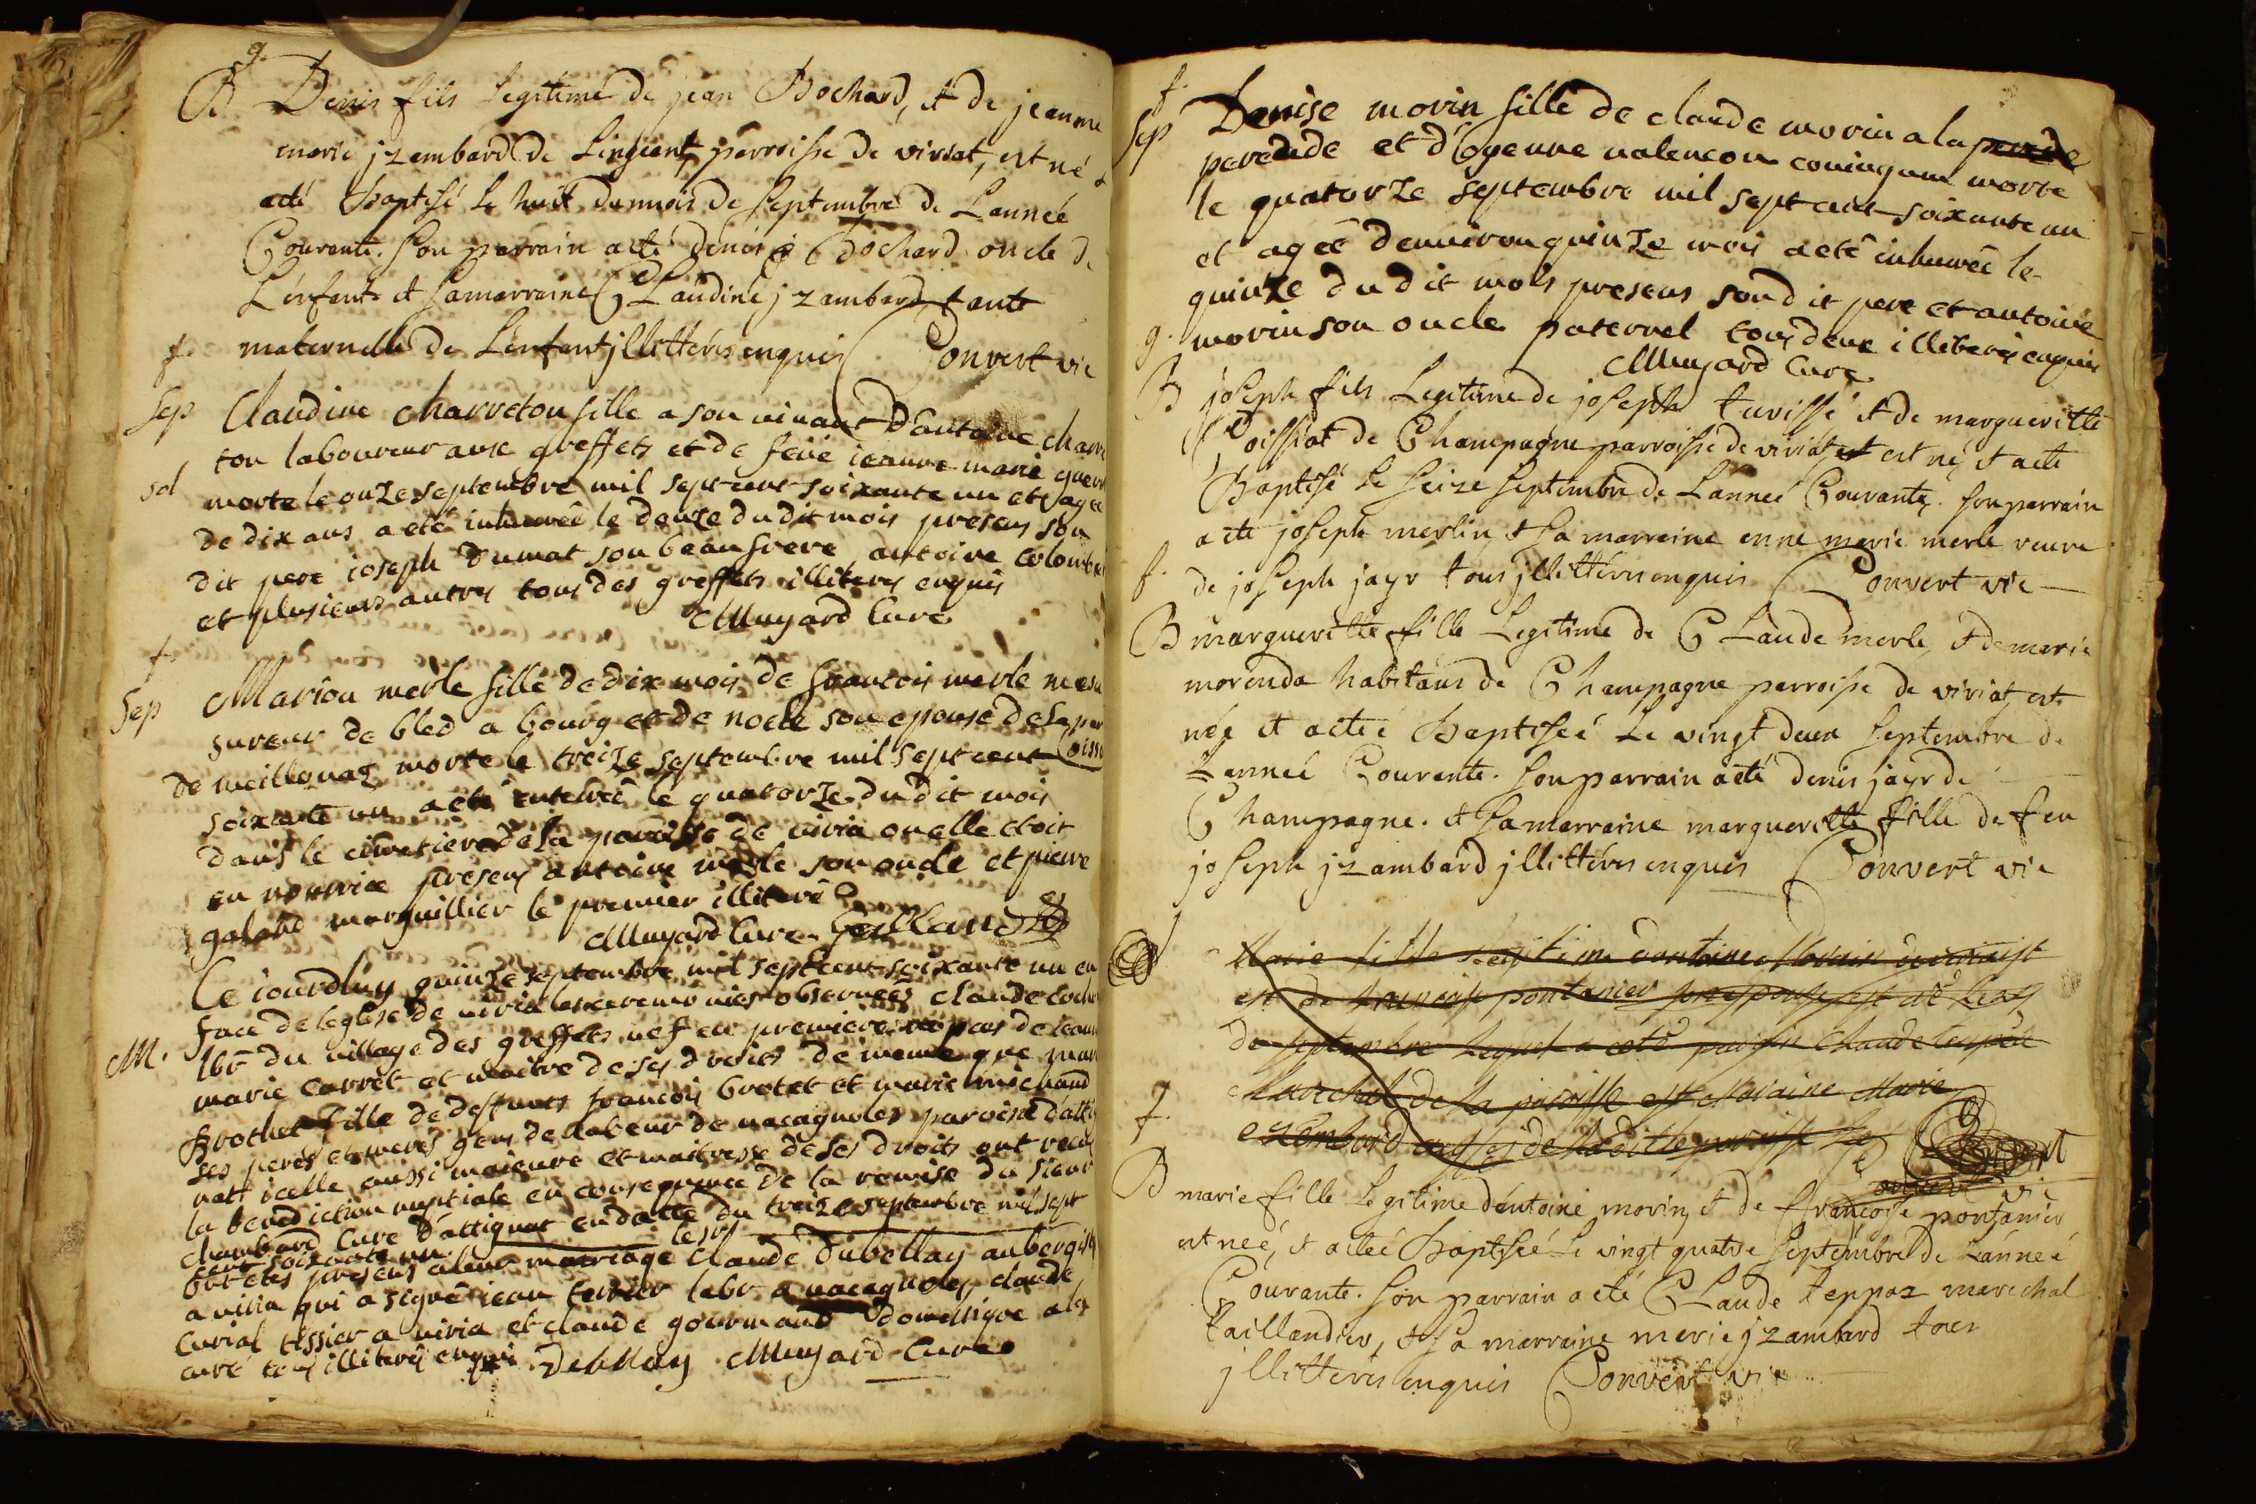 g.
B Denis fils Legitime de jean Bochard, et de jeanne
marie jzembard de Lingeant, parroisse de viriat, est né &
eté Baptisé Le huit du mois de septembre de L'année
Courante. son parrain a eté denis Bochard oncle de
L'enfant et sa marraine Claudine jzambard tante
f. maternelle de L'enfant jllitterés enquis Convert vic
Sep Claudine charreton fille a son vivant d'antoine charre
ton laboureur aux greffets et de feüe jeanne marie
sol morte le onze septembre mil sept cent soixante un et agée
de dix ans a eté inhumée le douze dudit mois presens son
dit pere joseph dumat son beaufrere antoine
et plusieurs autres tous des greffets illiterés enquis
CMuyard Curé
f.
Sep Marion merle fille de dix mois de francois merle mesu
sureur de bled a bourg et de son epouse de la par
de meillonaz morte le treize septembre mil sept cent oisse
soixante un a eté enterrée le quatorze dudit mois
dans le cimetiere de la paroisse de viria ou elle etoit
en nourrice presens antoine merle son oncle et pierre
galand marguillier le premier illiteré
CMuyard Curé. galland
Ce jourdhuy quinze septembre mil sept cent soixante un en
face de leglise de viria les ceremonies observées claude
M. lbr du village des greffets vef en premiere de jeanne
marie Carret et maitre de ses droits de meme que mar
Brothet fille de defunts francois brotet et marie michaud
ses peres et meres gens de labeur de macagnoles paroisse d'atti
nat icelle aussi majeure et maitresse de ses droits ont receu
la benediction nuptiale en consequence de la remise du sieur
Chambard Curé d'attignat en datte du treize septembre mil sept
cent soixante un les
ont étés presens a leur marriage Claude dubellay aubergiste
a viria qui a signé jean lbr a macagnoles claude
Curial tissier a viria et claude gourmand domestique a
curé tous illiterés enquis Debellay CMuyard Curé
f.
Sep Denise morin fille de claude morin a la
et d' valençon morte
le quatorze septembre mil sept cent soixante un
et agée d'environ quinze mois a eté inhumée le
quinze dudit mois presens son dit pere et antoine
g. morin son oncle paternel tous deux illiterés enquis
CMuyard Curé
B joseph fils Legitime de joseph tuvissé et de margueritte
Poissiat de Champagne parroisse de viriat est né et a eté
Baptisé Le seize septembre de L'année Courante. son parrain
a eté joseph merlin, et sa marraine enne marie merle veuve
f. de joseph jayr tous jllitterés enquis Convert vic
B margueritte fille Legitime de Claude merle, et de marie
morenda habitans de Champagne parroisse de viriat, est
née et a eteé Baptiseé Le vingt deux septembre de
L'année Courante. son parrain a eté denis jayr de
Champagne. et sa marraine margueritte fille de feu
joseph jzambard jllitterés enquis Convert vic
Marie fille Legitime dantoine Morin
et de francoise pontanier son epouse est né
de septembre lequel a eté Claude
Marechal de la paroisse et Maraine Marie
f. exembard de laditte paroisse
Convert vic
B marie fille Legitime d'entoine morin, et de françoise pontanier
est neé, et a eteé Baptiseé Le vingt quatre septembre de L'anneé
Courante. son parrain a eté Claude teppaz marechal
taillandier, et sa marraine marie jzambard tous
jllitterés enquis Convert vic